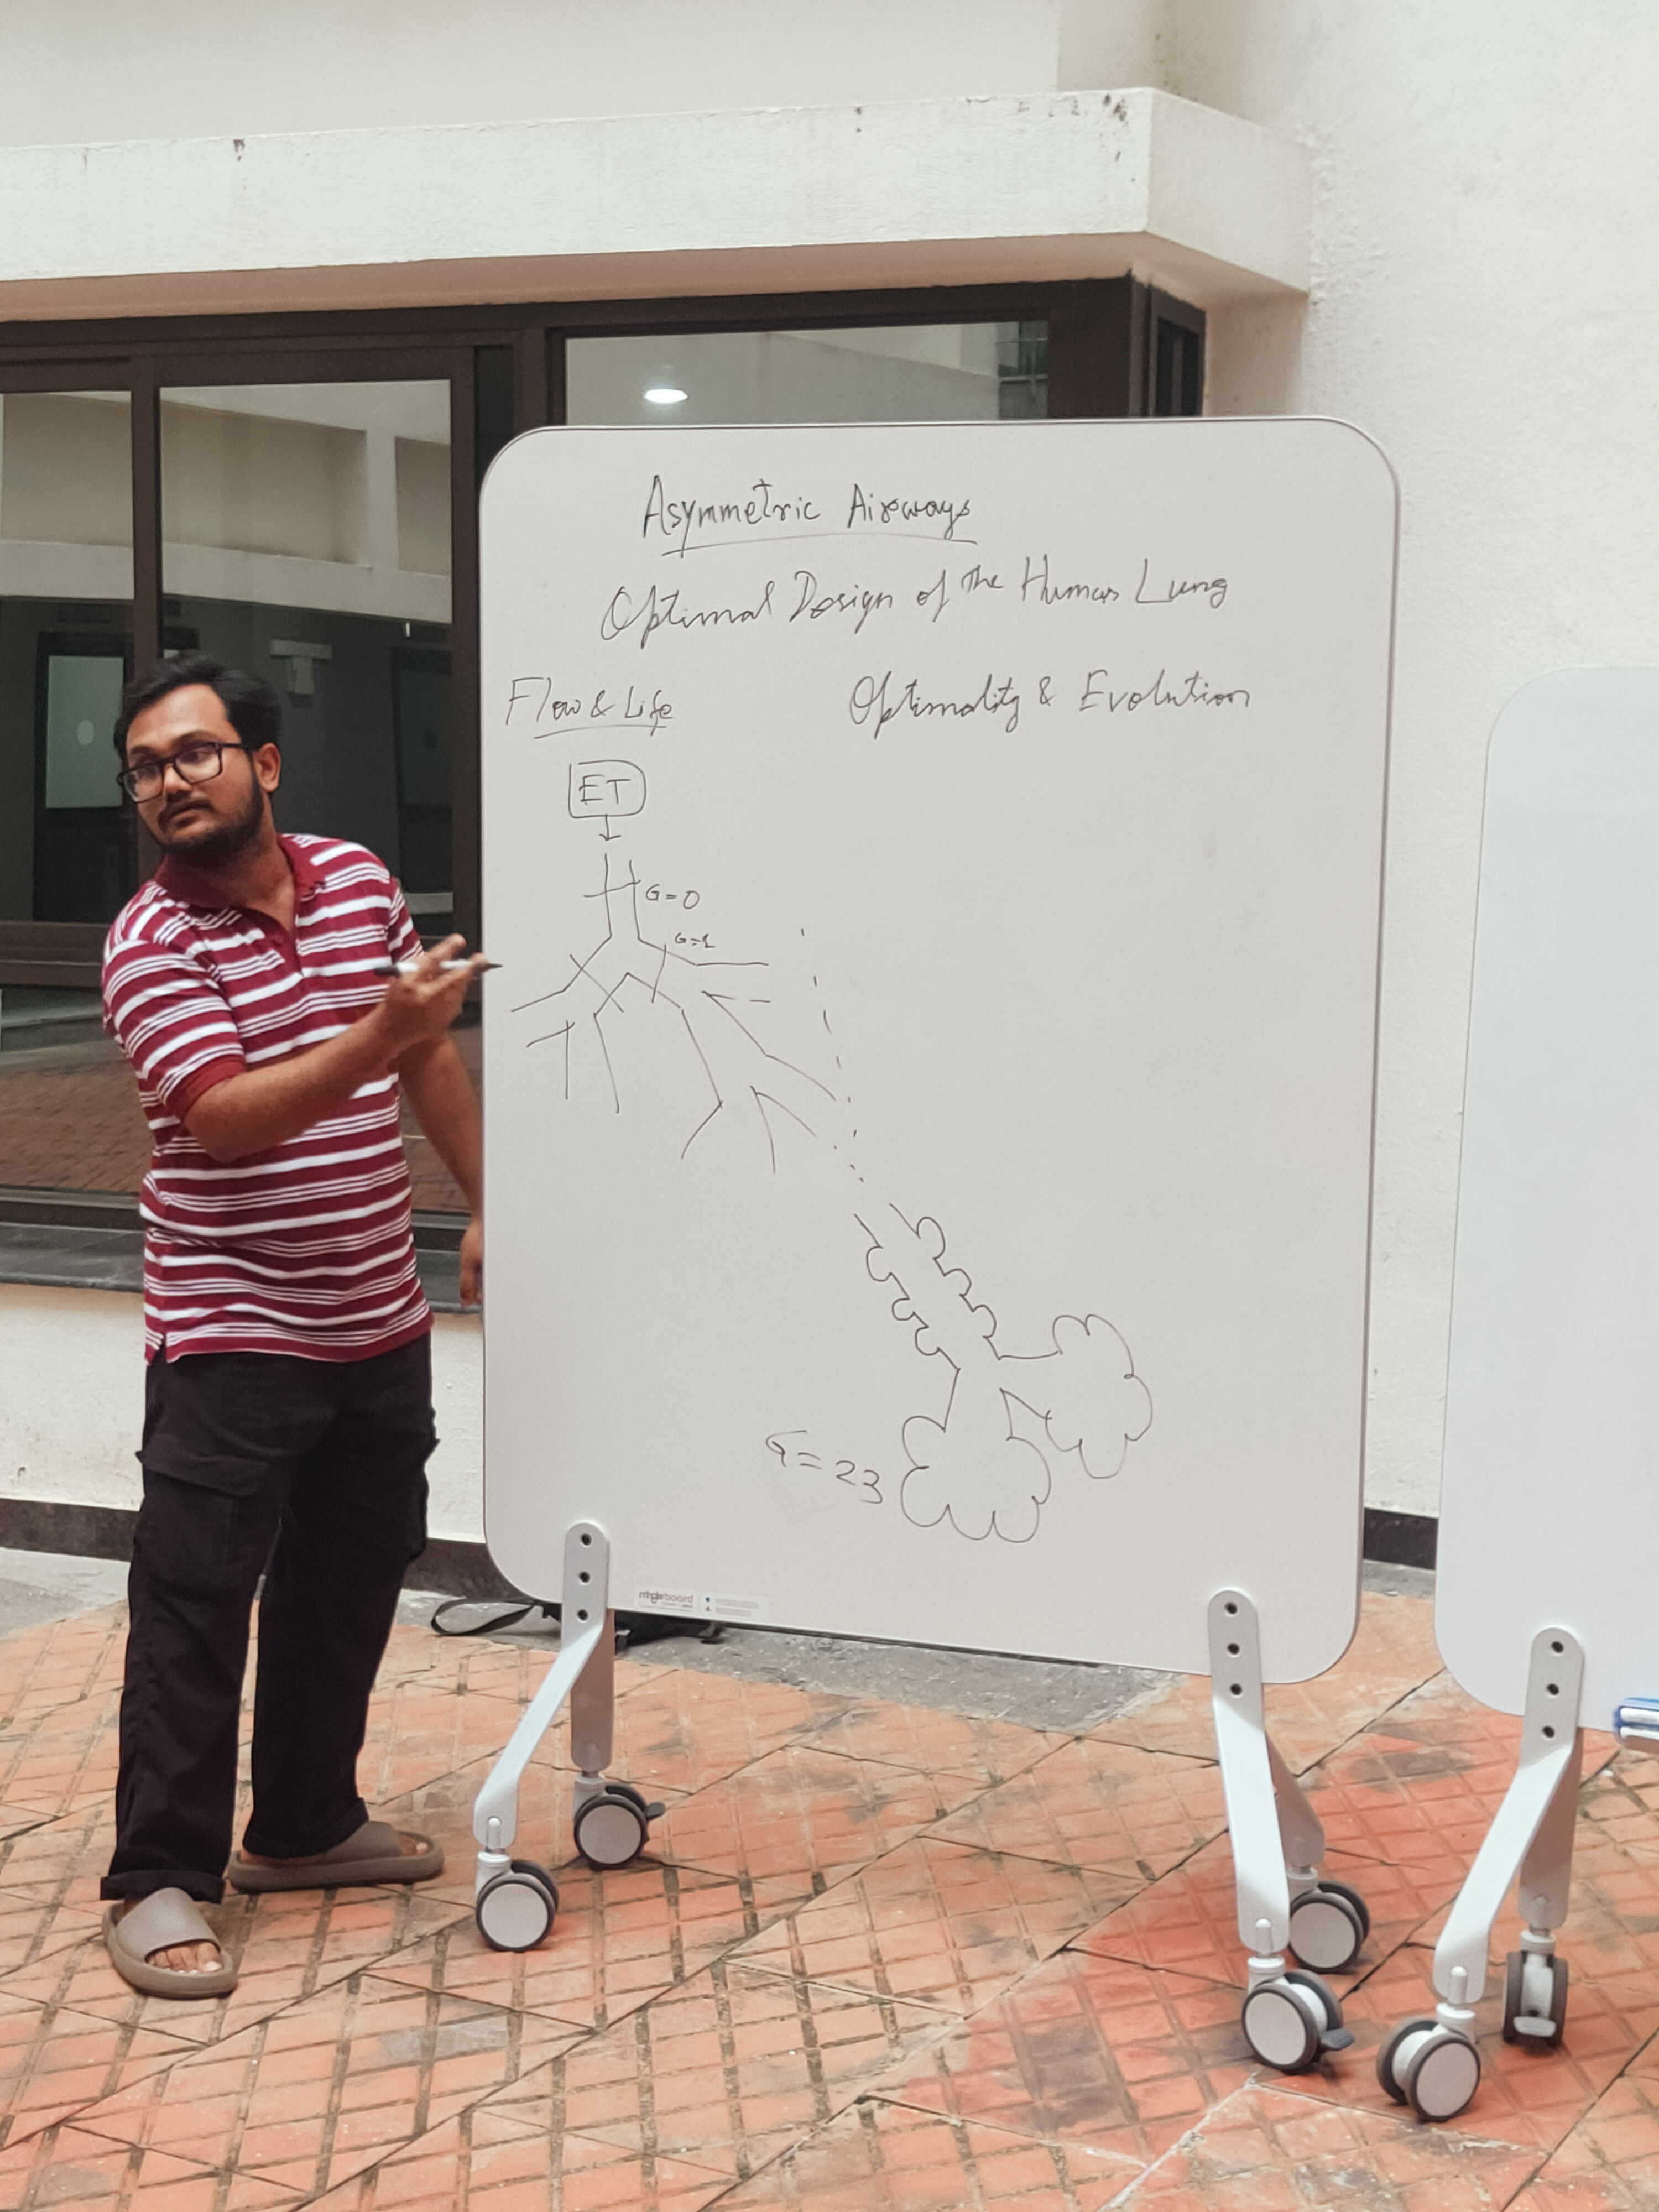 Asymmetric Airways
Optimal Design of the Human Lung
Flow & Life
Optimality & Evolution
ET
G=0
G=1
G=23